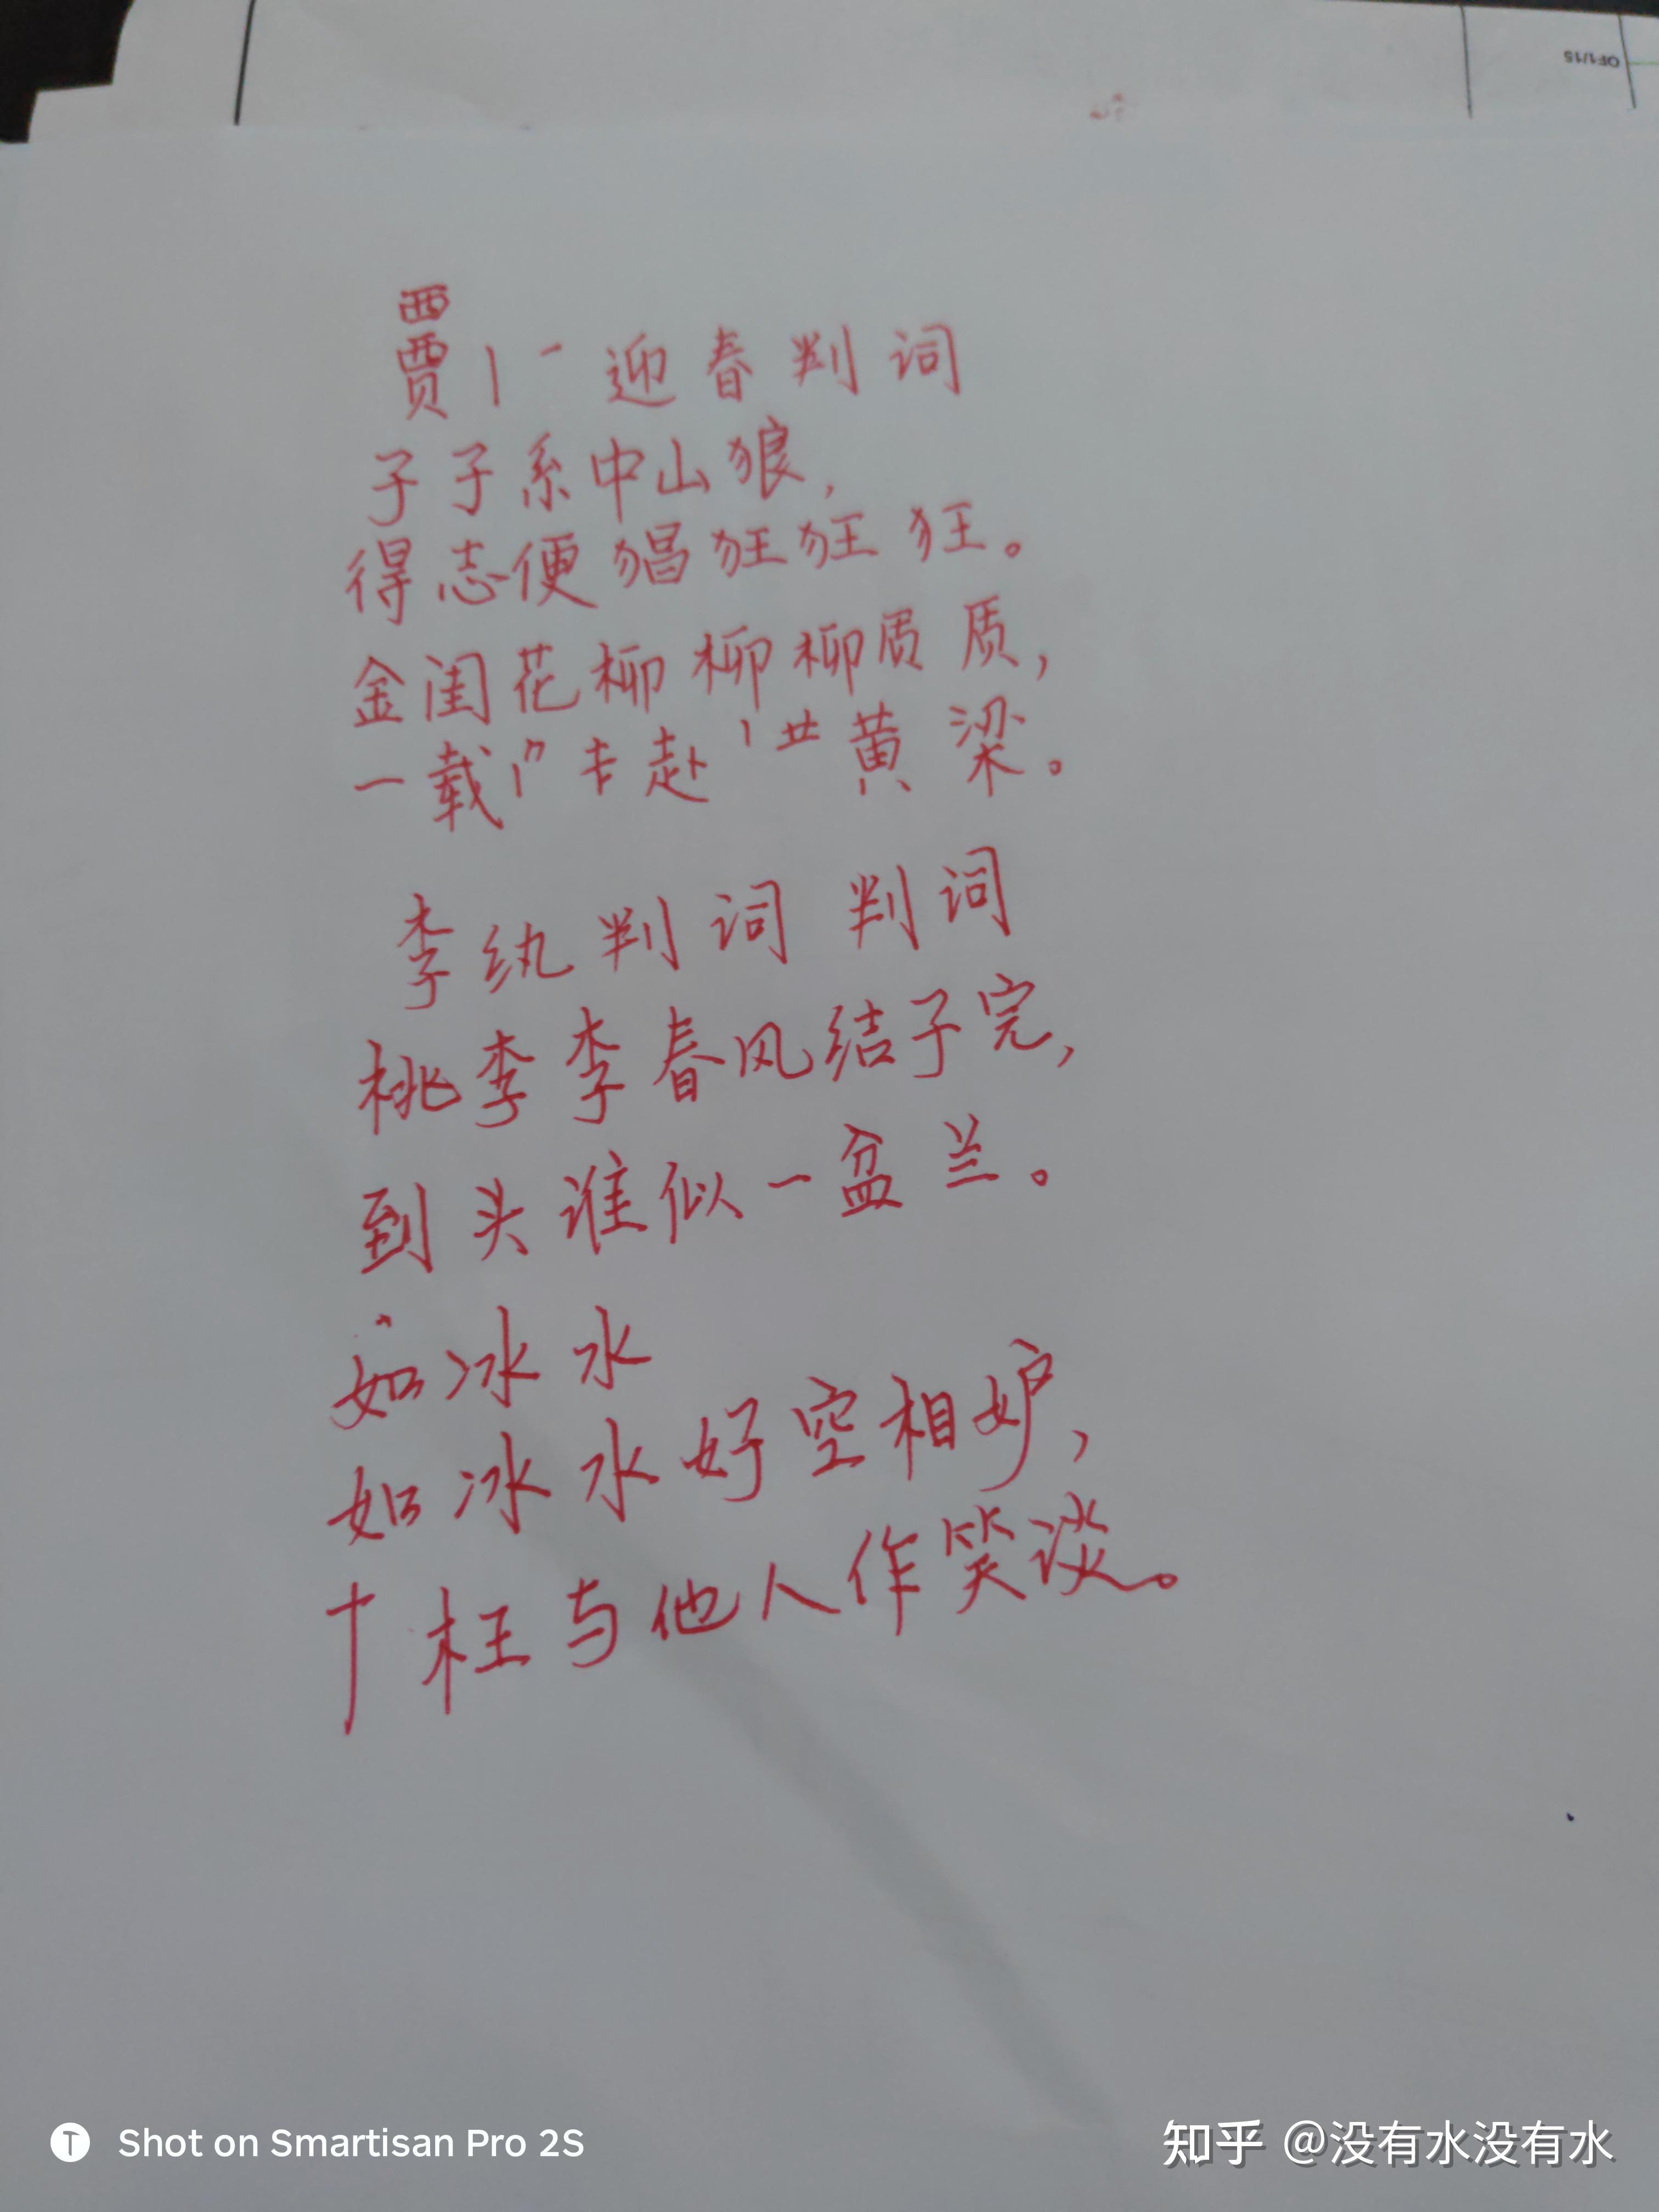 OF1/15
西
贾 迎春判词
子子系中山狼，
得志便猖狂狂狂。
金闺花柳柳柳质质，
一载赴黄梁。
李纨判词判词
桃李李春风结子完，
到头谁似一盆兰。
如冰水
如冰水水好空相妒，
枉与他人作笑谈。
Shot on Smartisan Pro 2S
知乎 @没有水没有水